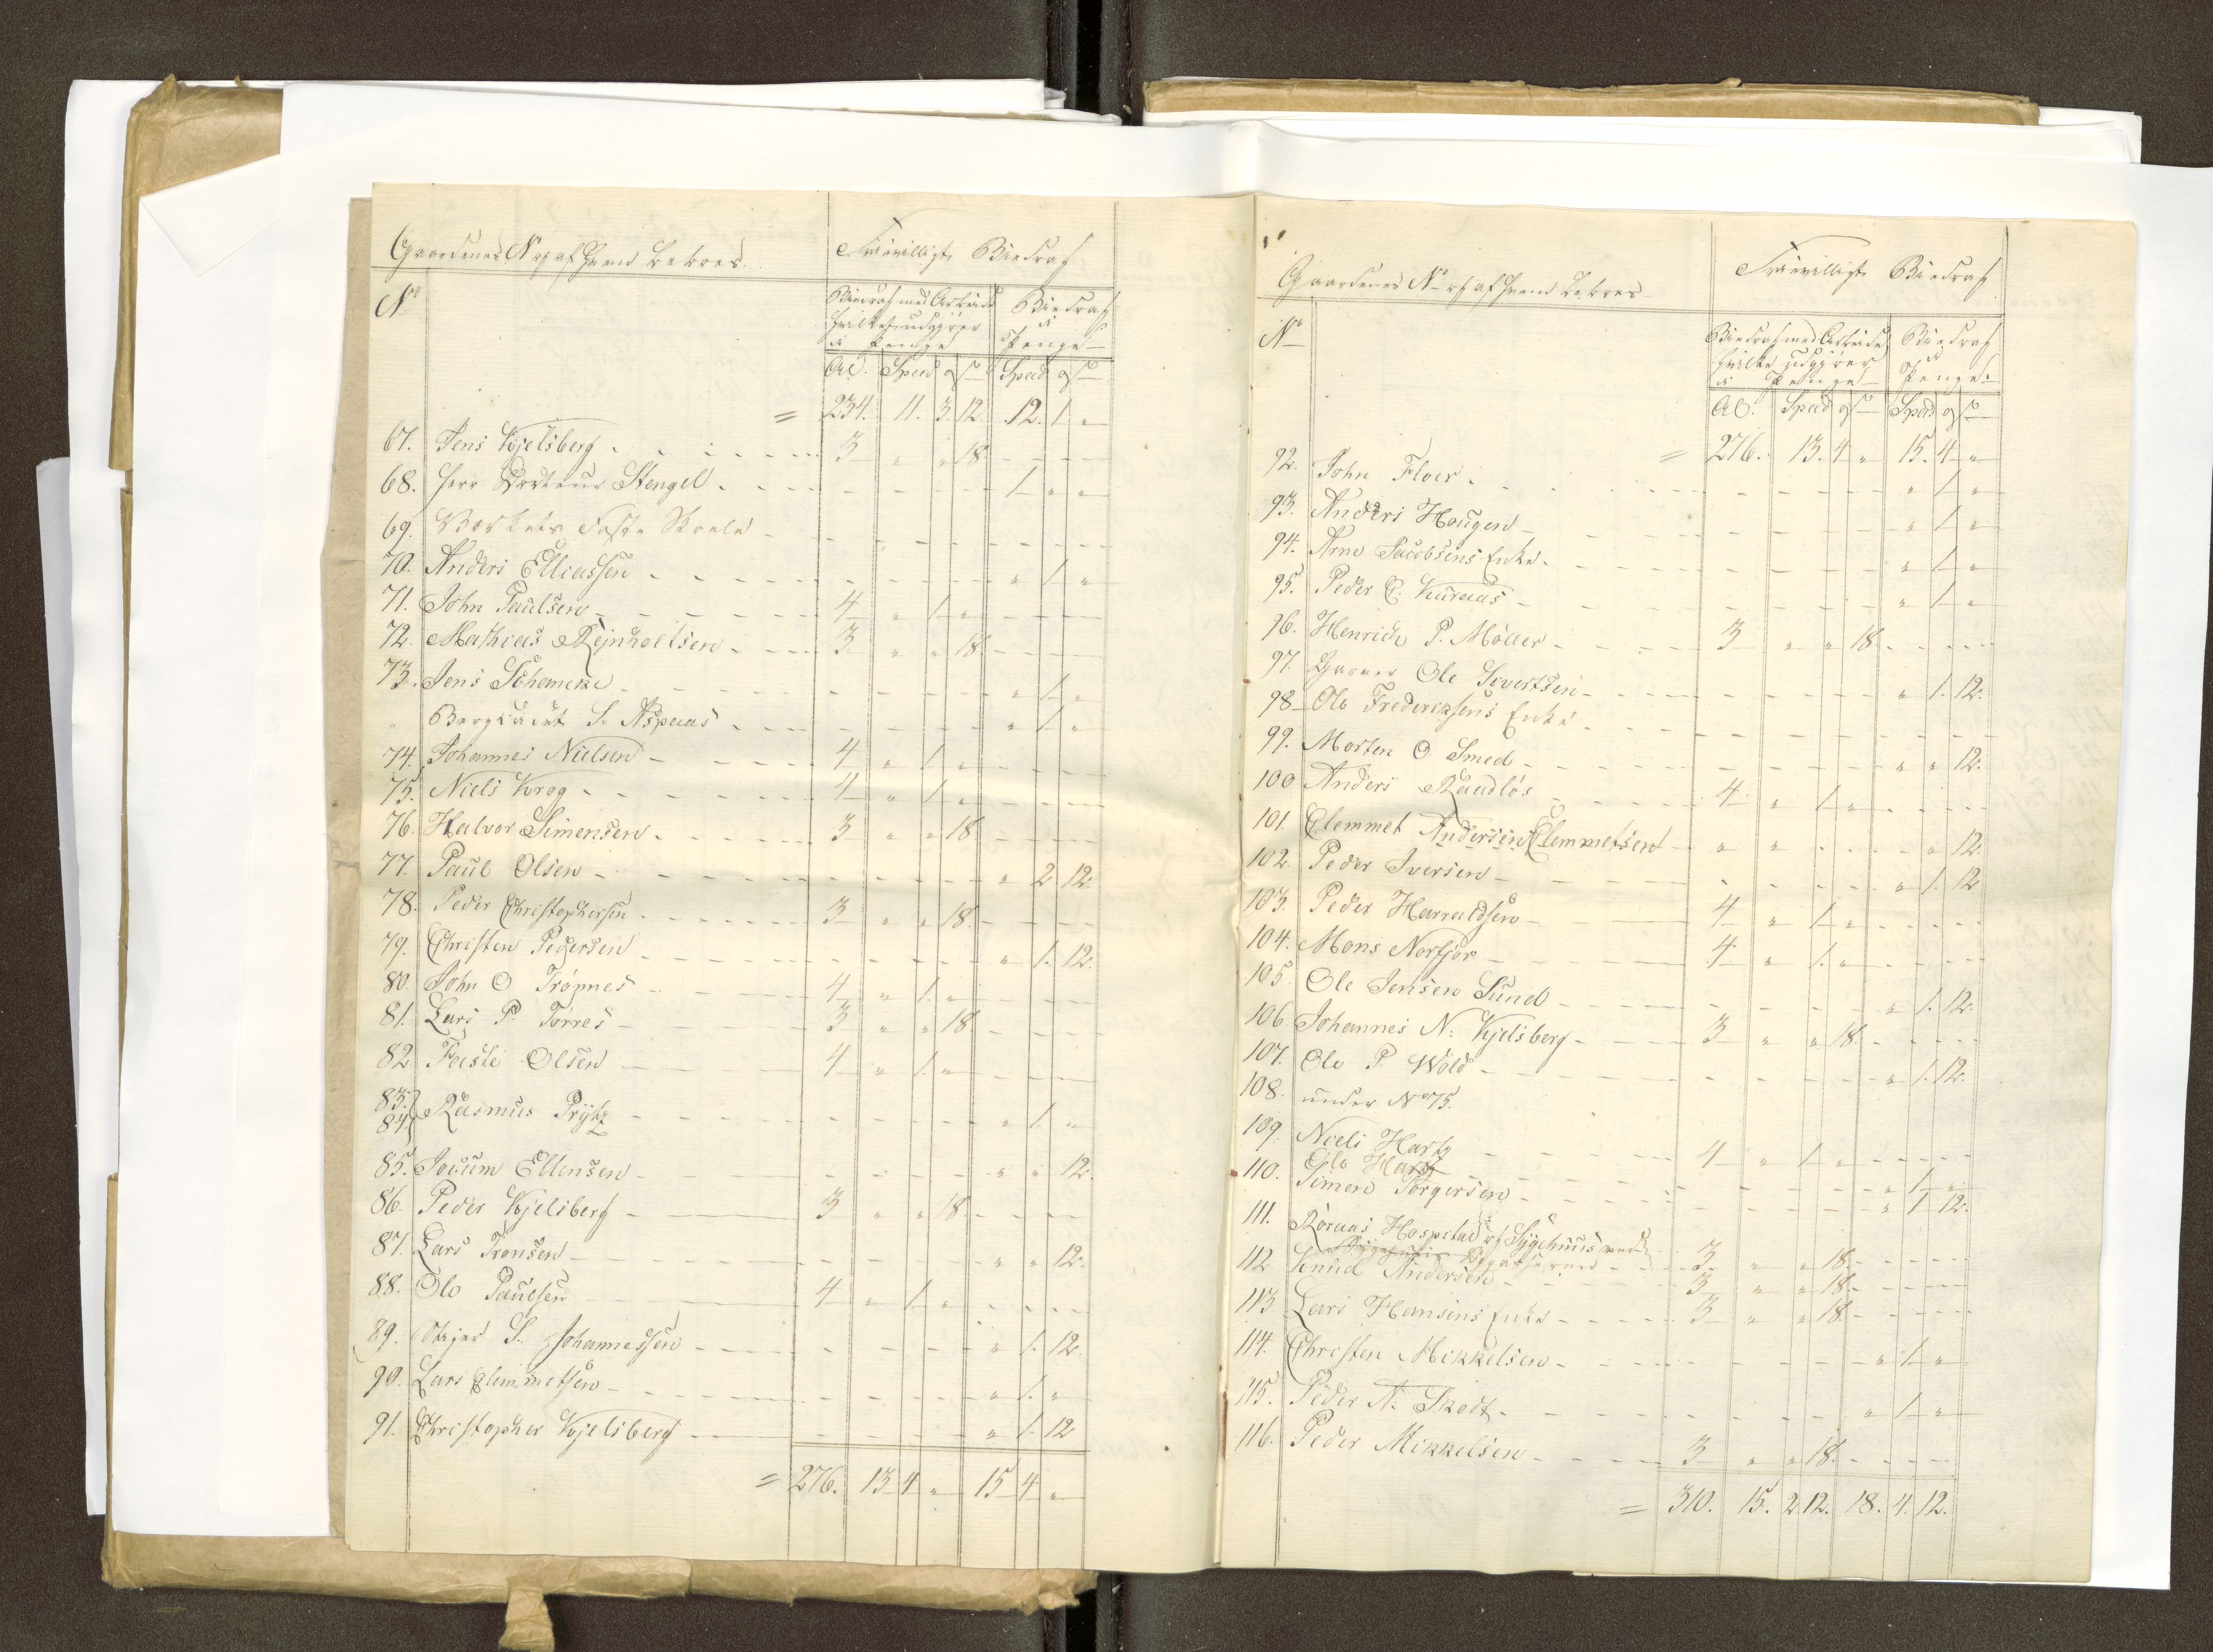 Gaardenes No og af hvem beboes.
Friivilligt Biedrag
No
Biedrag med Arbeide hvilket udgjør i Penge
Biedrag i Penge
Al. Specd o s Specd o s
= 234. 11. 3. 12. 12. 1 "
67. Jens Kjelsberg 3 " " 18.
68. Herr Docteur Stengel 1 " "
69. Værkets Faste Skoele
70. Anders Elliassen " 1 "
71. John Paulsen 4 " 1 "
72. Mathias Rejnholtsen 3 " " 18
73. Jens Schancke " 1 "
Bergcadet S. Aspaas " 1 "
74. Johannes Nielsen 4 " 1 "
75. Niels Krog 4 " 1 "
76. Halvor Simensen 3 " " 18
77. Paul Olsen " 2 12.
78. Peder Christophersen 3 " " 18.
79. Christen Pedersen " 1. 12.
80. John O Trøpnes 4 " 1 "
81. Lars P. Torres 3 " " 18
82. Feiste Olsen 4 " 1. "
83. 84. Rasmus Prÿtz " 1. "
85. Jocum Ellensen " " 12.
86. Peder Kjelsberg 3 " " 18
87. Lars Tronsen " " 12.
88. Olo Paulsen 4 " 1 "
89. Stiger S. Johannessen " 1. 12.
90. Lars Clemmetsen " 1. "
91. Christopher Kjelsberg " 1. 12
= 276. 13 4 " 15 4 "
Gaardenes No og af hvem beboes
Friivilligt Biedrag
No
Biedrag med Arbeide hvilke udgjører i Penge
Biedrag i Penge.
Al. Specd o s Specd o s
= 276. 13. 4 " 15. 4 "
92. John Floer " 1 "
93. Anders Hougen " 1 "
94. Arne Jacobsens Enke " 1 "
95. Peder C. Kuraas " 1 "
96. Henrich P. Møller 3 " " 18
97. Garver Ole Sivertsen " 1. 12.
98. Olo Fredericksens Enke
99. Morten O Smed " " 12.
100 Anders Raadløs 4 " 1 "
101. Clemmet Andersen Clemmetsen " " 12
102. Peder Iversen " 1. 12
103. Peder Harraldsen 4 " 1 "
104. Mons Nortjør 4 " 1. "
105 Ole Jensen Sund " 1. 12.
106. Johannes N. Kjelsberg 3 " " 18.
107. Ole P. Wold " 1. 12.
108. under No 75.
109. Niels Hartz 4 " 1 "
Olo Hartz " 1 "
110. Simen Torgersen " 1 12.
111. Røraas Hospital og Sygehuus med 3 " " 18.
112. Knud Andersen 3 " " 18.
113 Lars Hansens Enke 3 " " 18
114. Christen Mikkelsen " 1 "
115. Peder A. Skodt " 1 "
116. Peder Mikkelsen 3 " " 18.
= 310. 15. 2 12. 18. 4. 12.